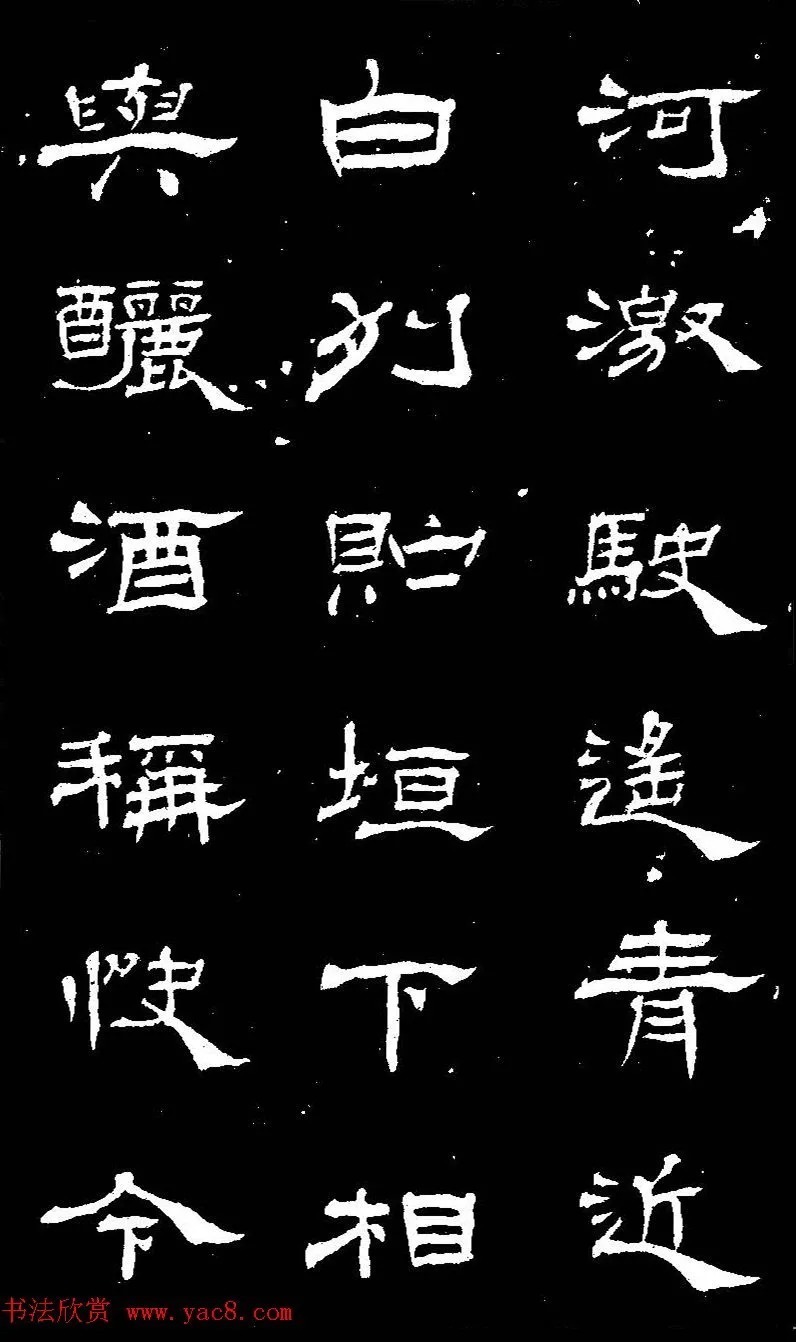 河激駛遙青近
白列貯垣下相
與釃酒稱快今
书法欣赏 www.yac8.com